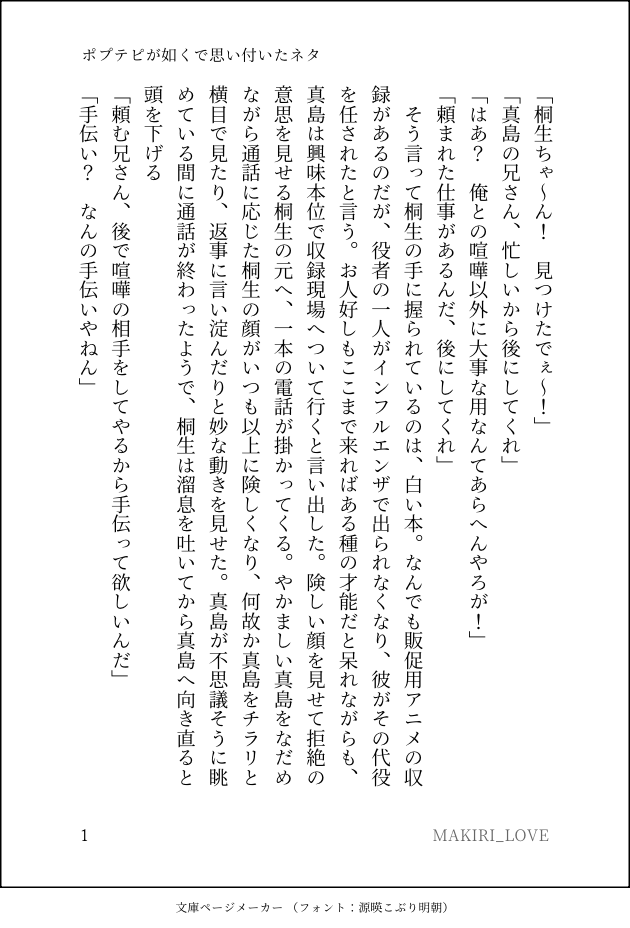 ポプテピが如くで思い付いたネタ
「桐生ちゃ～ん！　見つけたでぇ～！」
「真島の兄さん、忙しいから後にしてくれ」
「はあ？　俺との喧嘩以外に大事な用なんてあらへんやろが！」
「頼まれた仕事があるんだ、後にしてくれ」
　そう言って桐生の手に握られているのは、白い本。なんでも販促用アニメの収
録があるのだが、役者の一人がインフルエンザで出られなくなり、彼がその代役
を任されたと言う。お人好しもここまで来ればある種の才能だと呆れながらも、
真島は興味本位で収録現場へついて行くと言い出した。険しい顔を見せて拒絶の
意思を見せる桐生の元へ、一本の電話が掛かってくる。やかましい真島をなだめ
ながら通話に応じた桐生の顔がいつも以上に険しくなり、何故か真島をチラリと
横目で見たり、返事に言い淀んだりと妙な動きを見せた。真島が不思議そうに眺
めている間に通話が終わったようで、桐生は溜息を吐いてから真島へ向き直ると
頭を下げる
「頼む兄さん、後で喧嘩の相手をしてやるから手伝って欲しいんだ」
「手伝い？　なんの手伝いやねん」
1
MAKIRI_LOVE
文庫ページメーカー （フォント：源暎こぶり明朝）